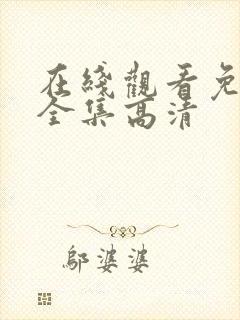 在綫觀看免
全集高清
鄔婆婆